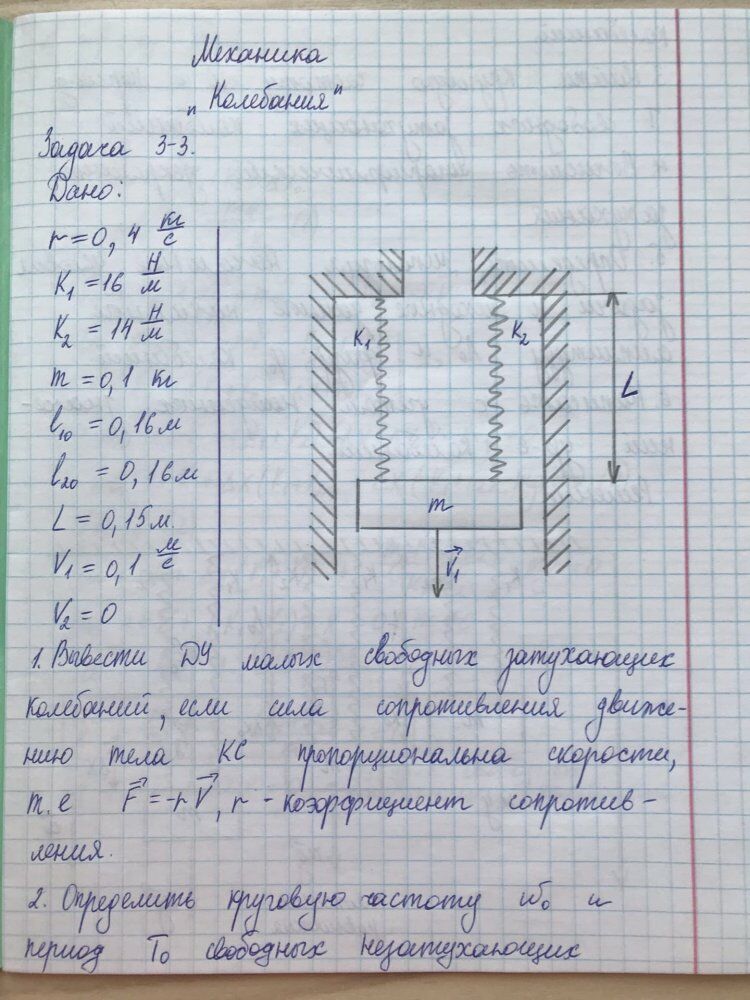 Механика
„Колебания"
Задача 3-3.
Дано:
r = 0,4 кг/с
K₁ = 16 Н/м
K₂ = 14 Н/м
m = 0,1 кг
l₁₀ = 0,16 м
l₂₀ = 0,16 м
L = 0,15 м.
V₁ = 0,1 м/с
V₂ = 0
K₁
K₂
L
m
V₁
1. Вывести ДУ малых свободных затухающих
колебаний, если сила сопротивления движе-
нию тела КС пропорциональна скорости,
т.е F = -rV, r - коэффициент сопротив-
ления.
2. Определить круговую частоту w₀ и
период T₀ свободных незатухающих